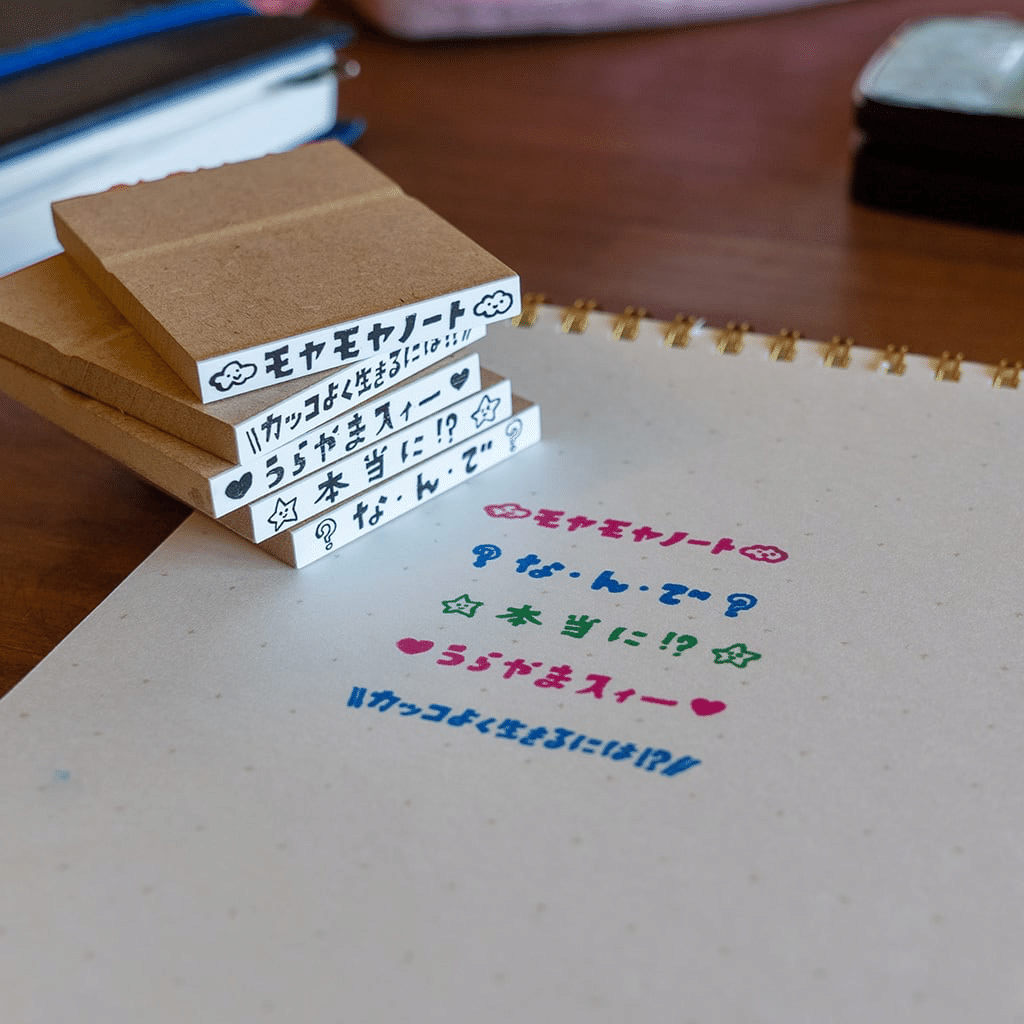 モヤモヤノート
\\カッコよく生きるには!?//
♥うらやまスィー♥
☆本当に!?☆
?な・ん・で?
モヤモヤノート
?な・ん・で〜?
☆本当に!?☆
♥うらやまスィー♥
\\カッコよく生きるには!?//